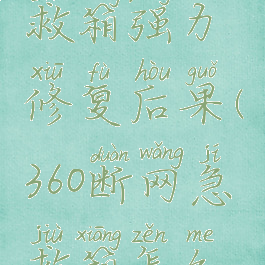 救箱强力
xiū fù hòu guǒ
修复后果(
duàn wǎng jí
360断网急
jiù xiāng zěn me
救箱怎么